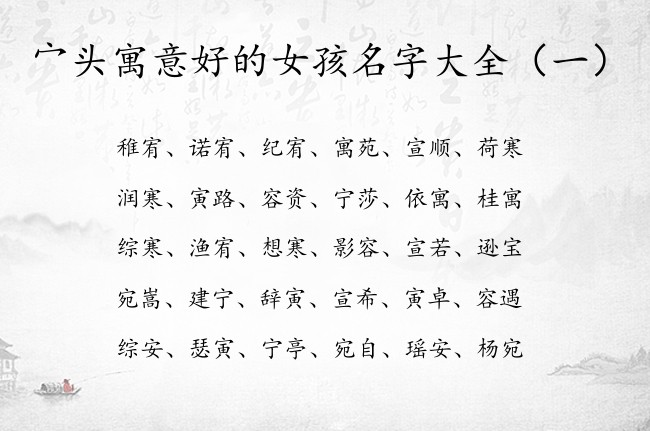 宀头寓意好的女孩名字大全（一）
稚宥、诺宥、纪宥、寓苑、宣顺、荷寒
润寒、寅路、容资、宁莎、依寓、桂寓
综寒、渔宥、想寒、影容、宣若、逊宝
宛嵩、建宁、辞寅、宣希、寅卓、容遇
综安、瑟寅、宁亭、宛自、瑶安、杨宛